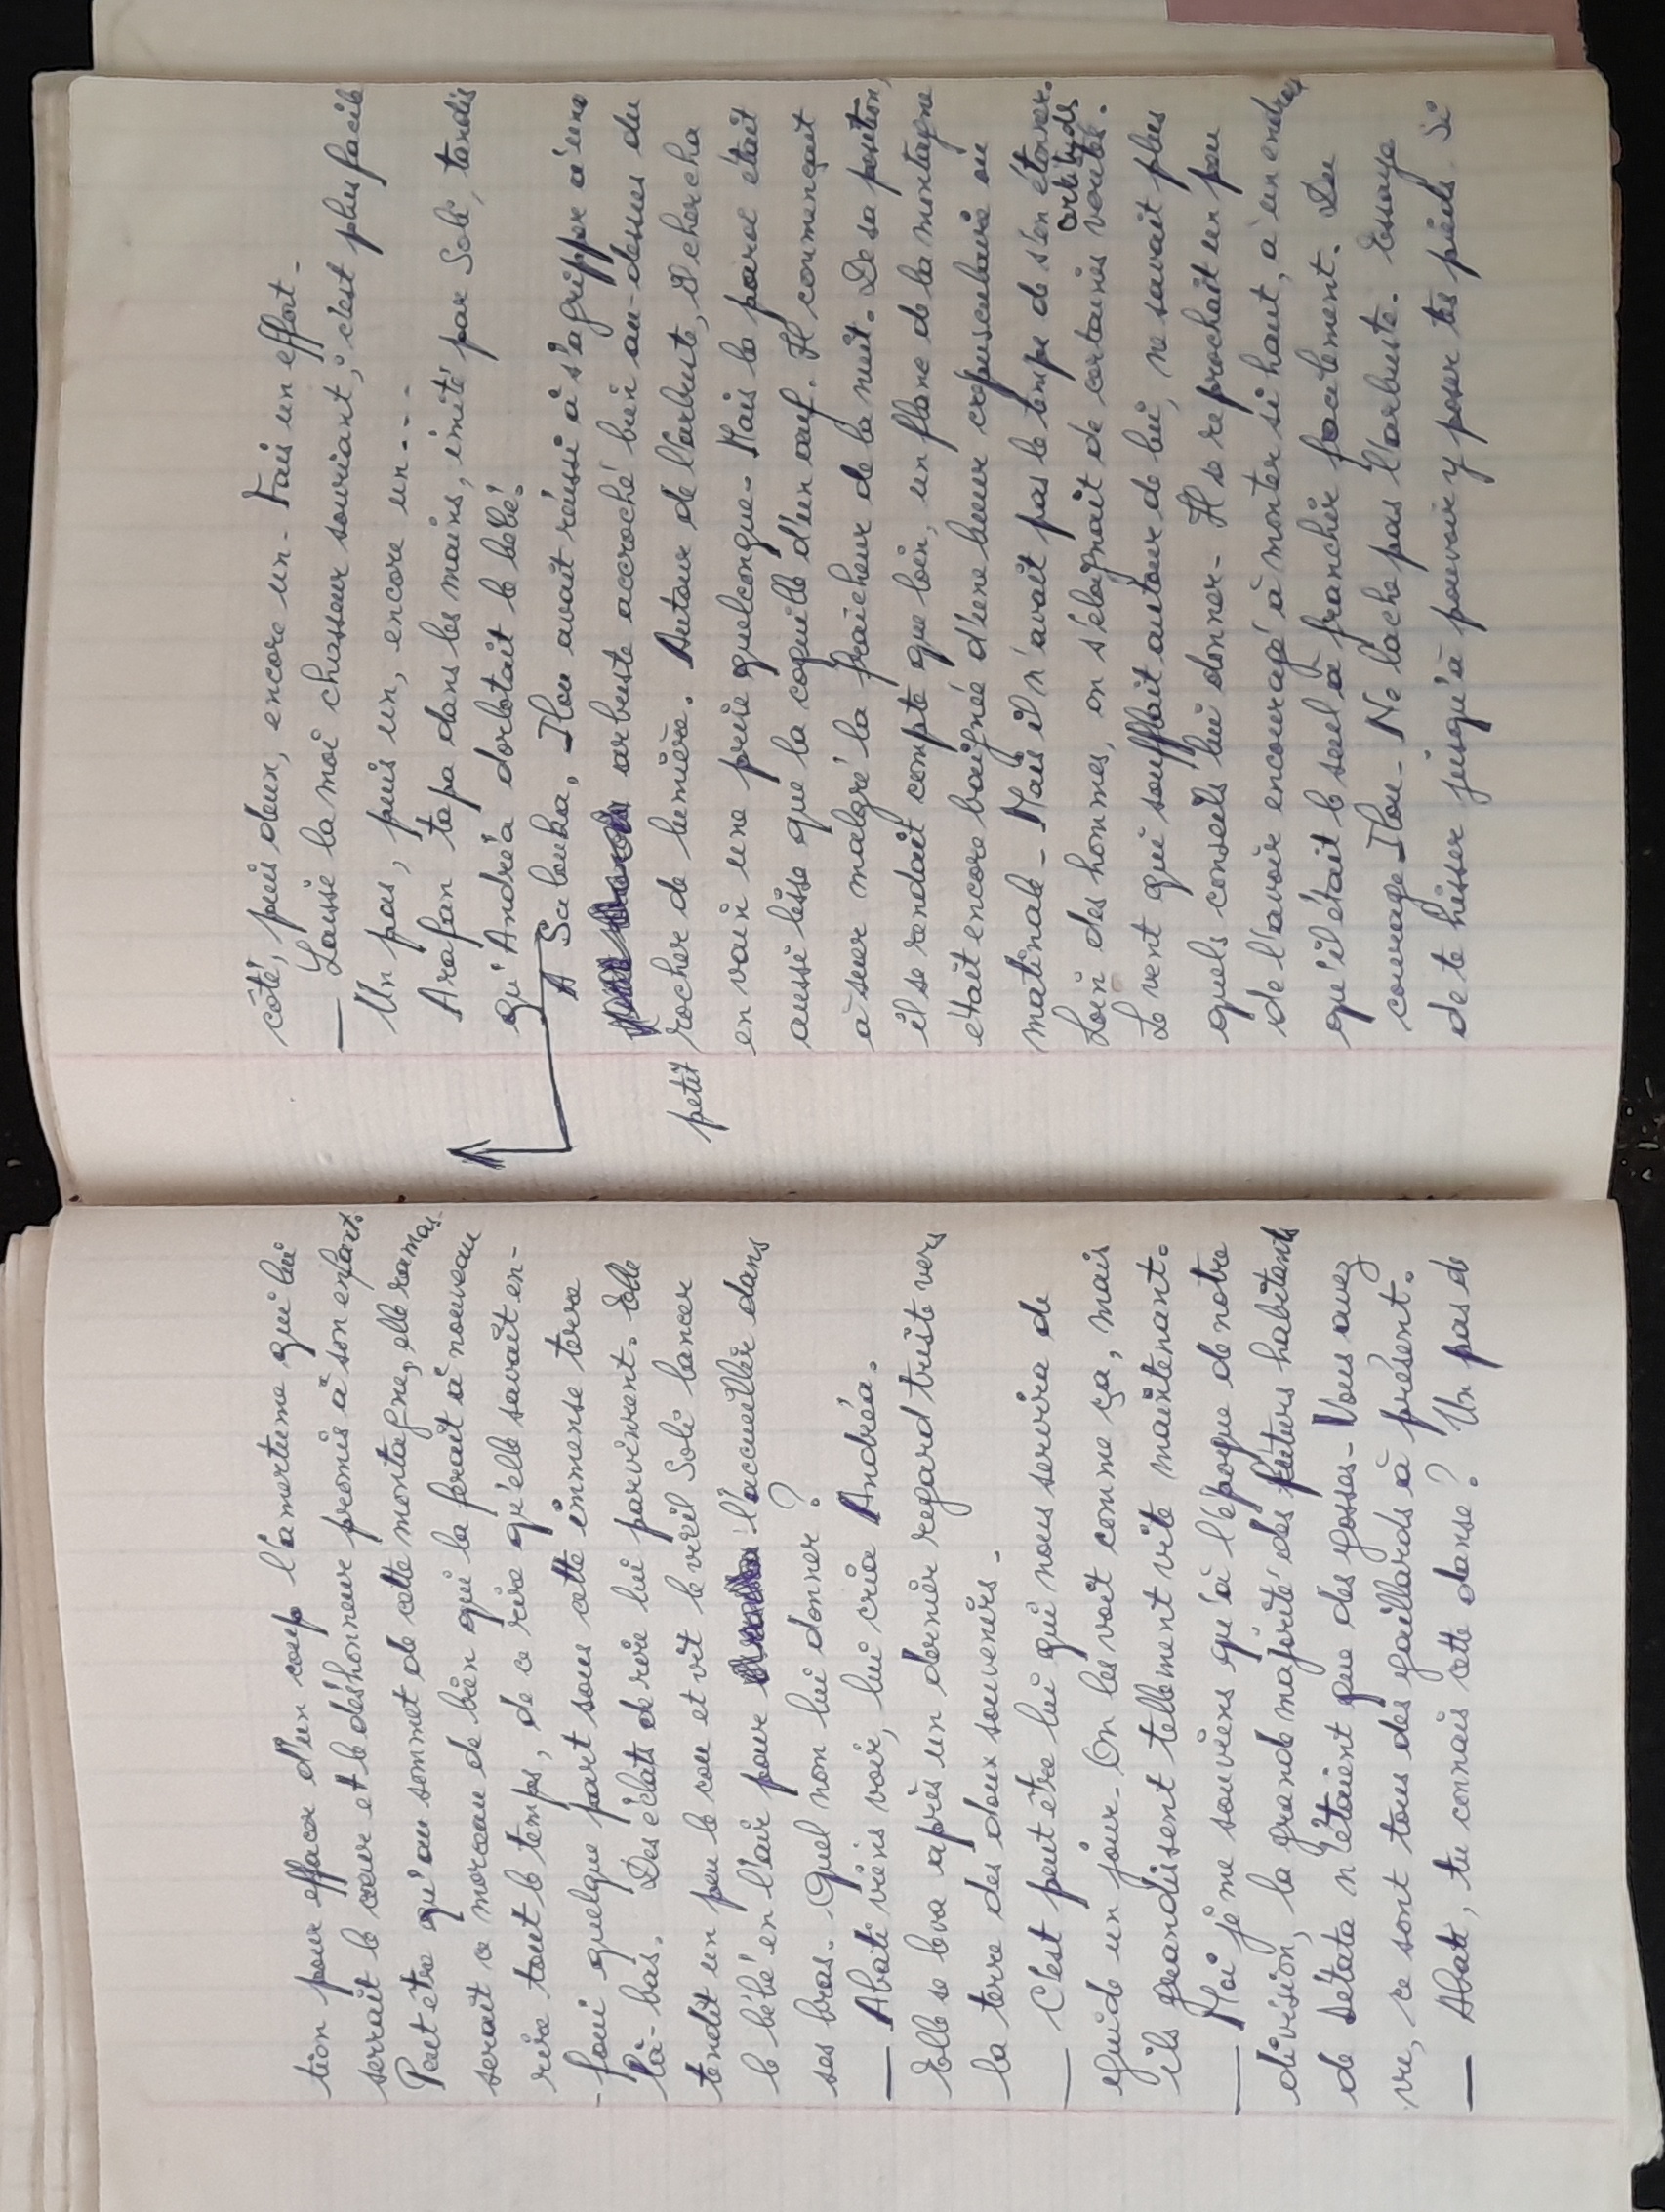 tion pour effacer d'un coup l'amertume qui lui
serrait le cœur et le déshonneur promis à son enfant.
Peut-être qu'au sommet de cette montagne, elle ramas-
serait ce morceau de bien qui la ferait à nouveau
rire tout le temps, de ce rire qu'elle savait en-
foui quelque part sous cette immense terre
là-bas. Des éclats de rire lui parvinrent. Elle
tendit un peu le cou et vit le viril Soli lancer
le bébé en l'air pour l'accueillir dans
ses bras. Quel nom lui donner ?
— Abati viens voir, lui cria Andréa.
Elle se leva après un dernier regard triste vers
la terre des doux souvenirs.
— C'est peut être lui qui nous servira de
guide un jour. On les voit comme ça, mais
ils grandissent tellement vite maintenant.
— Moi je me souviens qu'à l'époque de notre
division, la grande majorité des futurs habitants
de Sétata n'étaient que des gosses. Vous avez
vu, ce sont tous des gaillards à présent.
— Abati, tu connais cette danse ? Un pas de
côté, puis deux, encore un. Fais un effort.
— Laisse la moi chasseur souriant ; c'est plus facile
Un pas, puis un, encore un....
Arafan tapa dans les mains, imité par Soli, tandis
qu'Andréa dorlotait le bébé.
A Salouha, Ilou avait réussi à s'agripper à un
arbuste accroché bien au-dessus du
petit rocher de lumière. Autour de l'arbuste, il chercha
en vain une prise quelconque. Mais la paroi était
aussi lisse que la coquille d'un œuf. Il commençait
à suer malgré la fraîcheur de la nuit. De sa position,
il se rendait compte que loin, un flanc de la montagne
était encore baigné d'une lueur crépusculaire ou
matinale. Mais il n'avait pas le temps de s'en étonner.
Loin des hommes, on s'éloignait de certaines certitudes voutes.
Le vent qui soufflait autour de lui, ne savait plus
quels conseils lui donner. Il se reprochait un peu
de l'avoir encouragé à monter si haut, à un endroit
qu'il était le seul à franchir facilement. Du
courage Ilou. Ne lache pas l'arbuste. Essaye
de te hisser jusqu'à pouvoir y poser tes pieds. Si